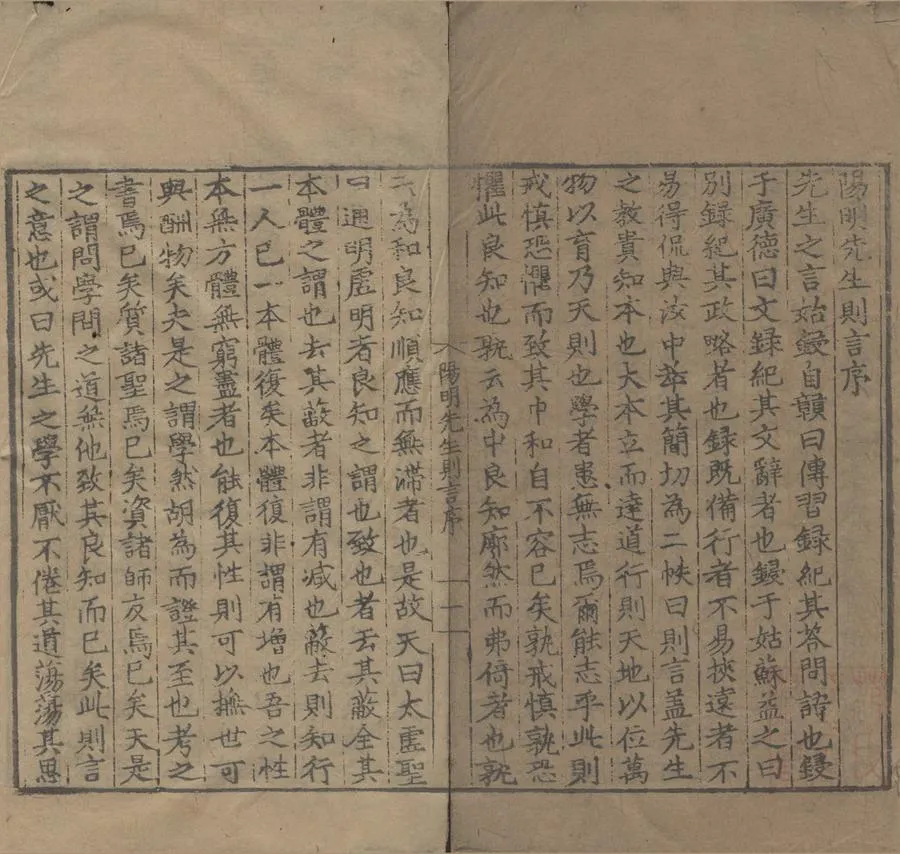 陽明先生則言序
先生之言始鋟自贛曰傳習録紀其荅問語也鋟
于廣德曰文録紀其文辭者也鋟于姑蘇益之曰
别録紀其政略者也録既備行者不易挾遠者不
易得侃與汝中萃其簡切為二帙曰則言盖先生
之教貴知本也大本立而達道行則天地以位萬
物以育乃天則也學者患無志焉爾能志乎此則
戒慎恐懼而致其中和自不容已矣孰戒慎孰恐
懼此良知也孰云為中良知廓然而弗倚者也孰
陽明先生則言序 一
云為和良知順應而無滞者也是故天曰太虛聖
曰通明虛明者良知之謂也致也者去其蔽全其
本體之謂也去其蔽者非謂有减也蔽去則知行
一人已一本體復矣本體復非謂有增也吾之性
本無方體無窮盡者也能復其性則可以撫世可
與酬物矣夫是之謂學然胡為而證其至也考之
書焉已矣質諸聖焉已矣資諸師友焉已矣天是
之謂問學問之道無他致其良知而已矣此則言
之意也或曰先生之學不厭不倦其道蕩蕩其思